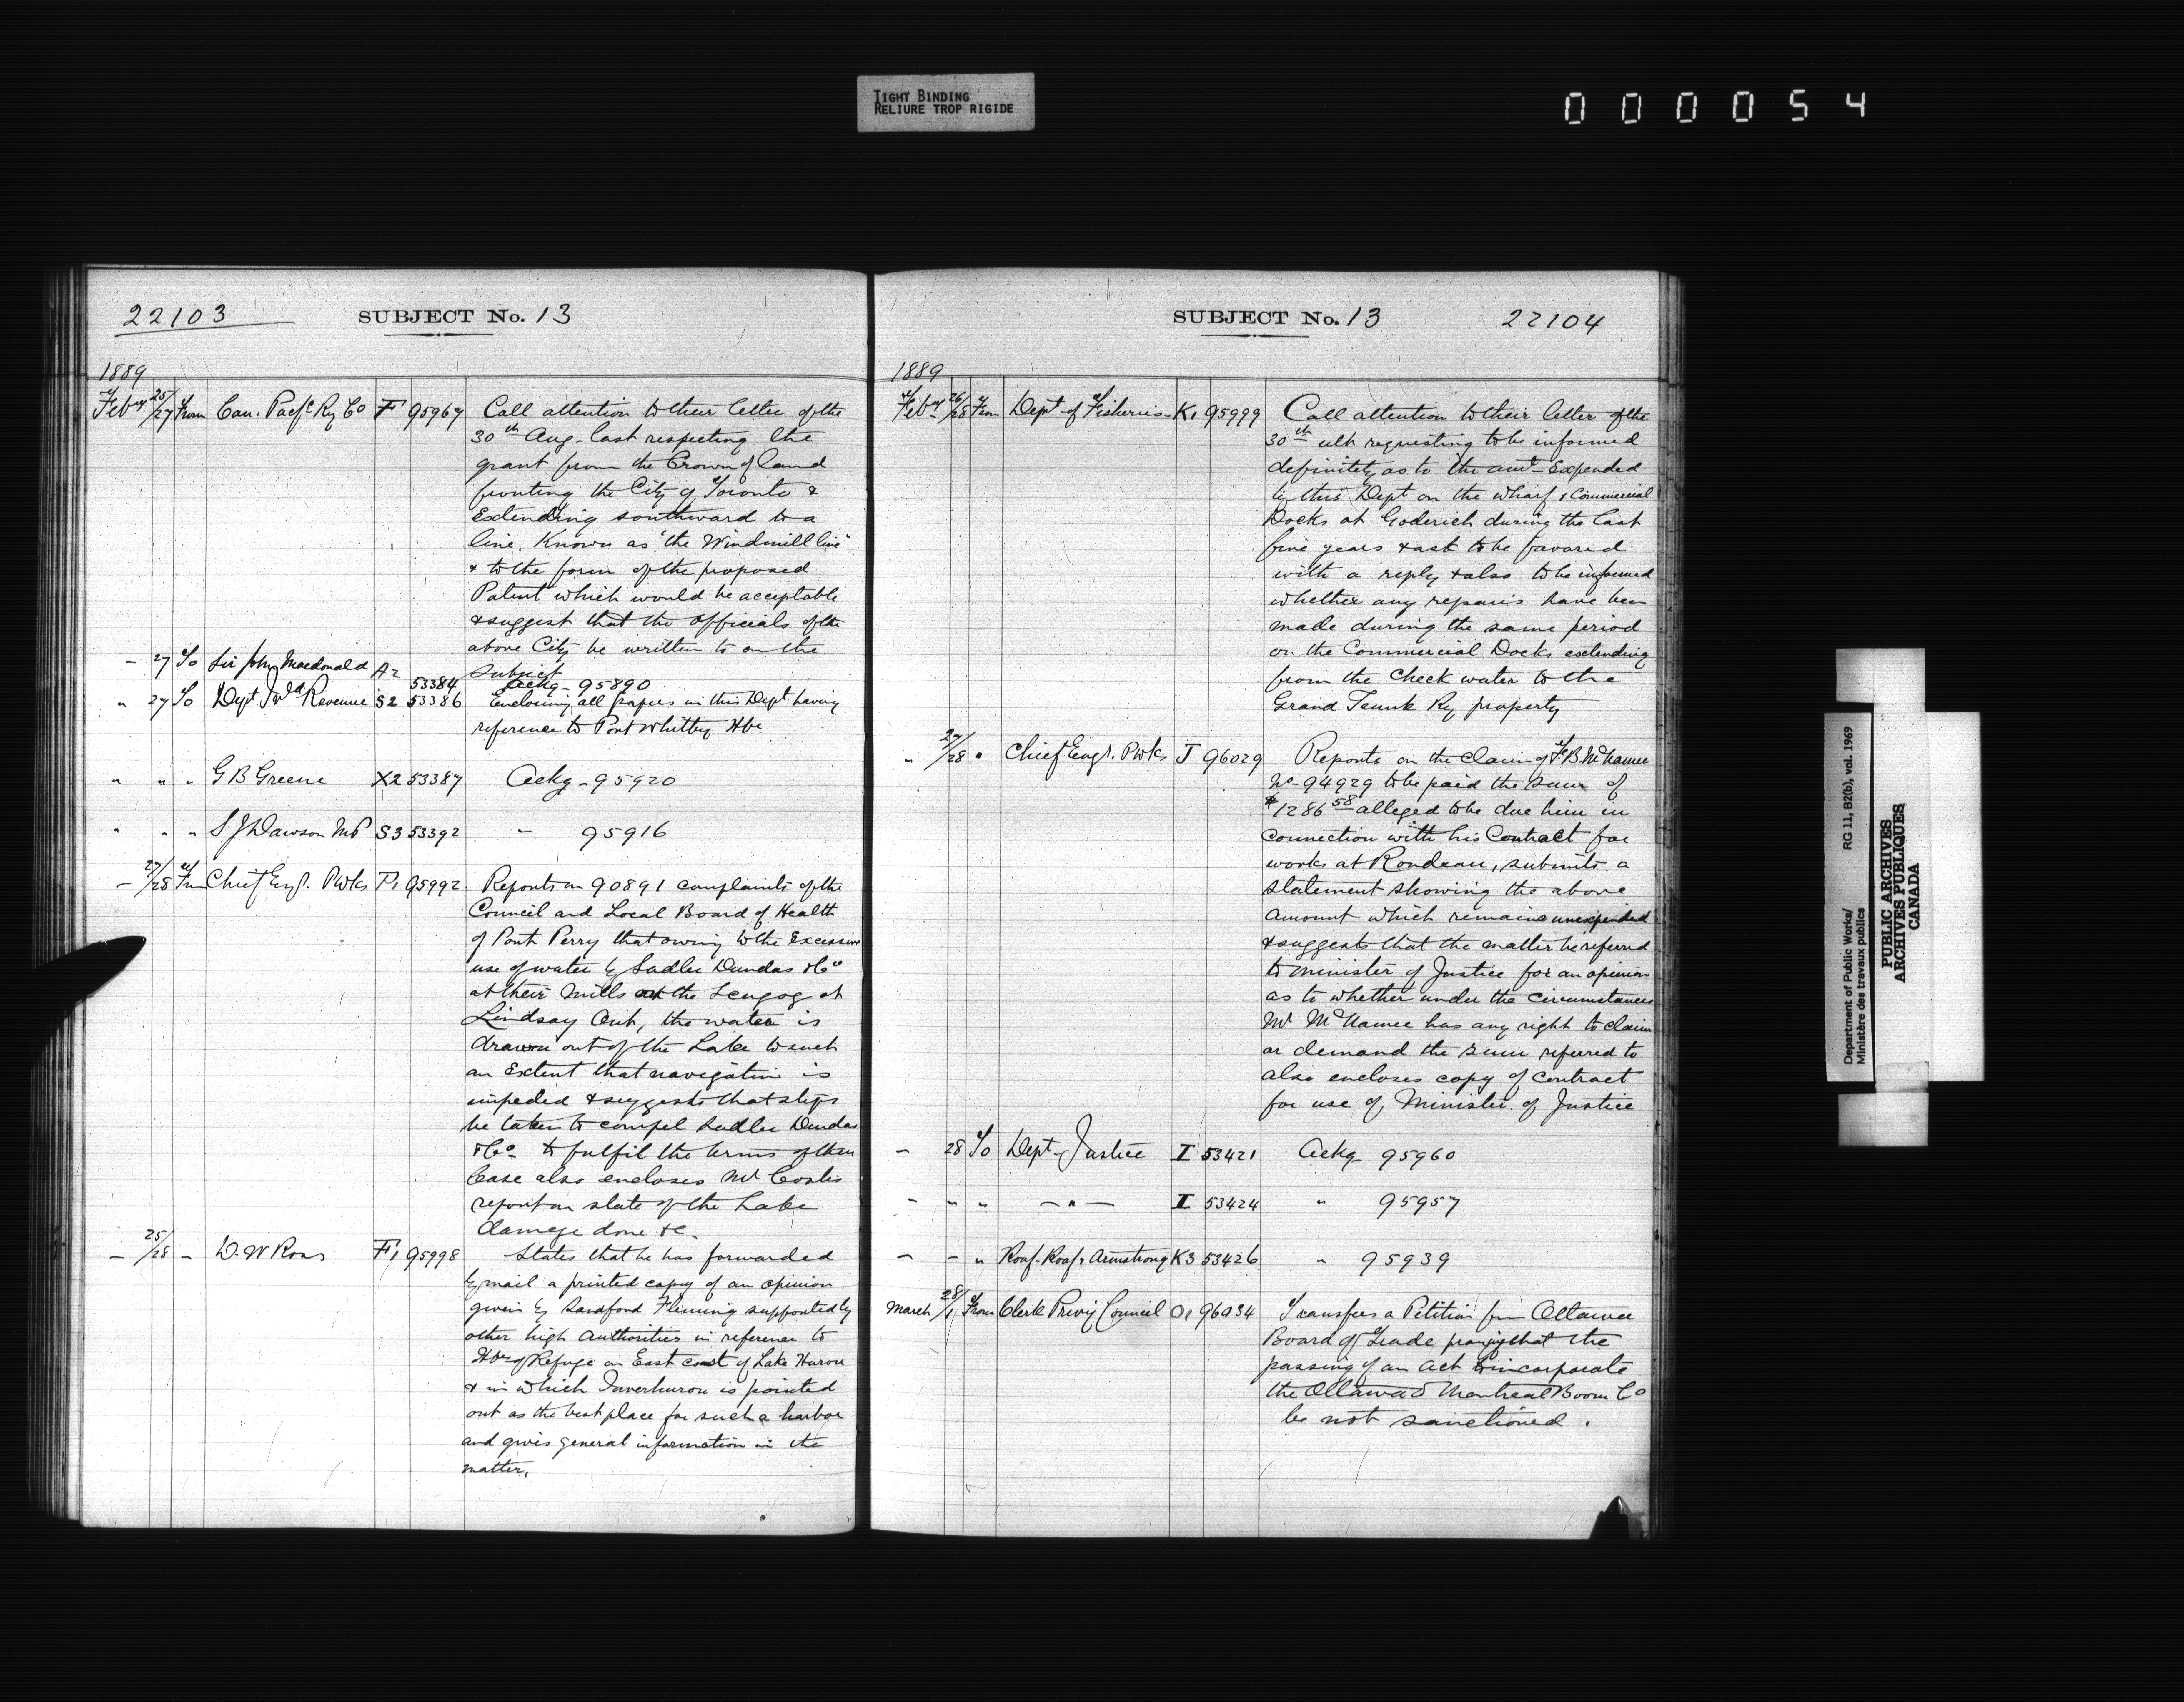 TIGHT BINDING
RELIURE TROP RIGIDE
000054
22103
SUBJECT No. 13
1889
Feby 25/27 From Can. Pacfc Ry Co F 95967 Call attention to their letter of the
30th Aug. last respecting the
grant from the Crown of land
fronting the City of Toronto &
Extending southward to a
line Known as "the Windmill line"
& to the form of the proposed
Patent which would be acceptable
& suggest that the officials of the
above City be written to on the
subject
- 27 To Sir John Macdonald A2 53384 Ackg - 95890
" 27 To Dept Ind Revenue S2 53386 Enclosing all papers in this Dept having
reference to Port Whitby Hbr
" " " G B Greene X2 53387 Ackg - 95920
" " " S J Dawson MP S3 53392 - 95916
- 27/28 From Chief Engr. PWks P1 95992 Reports on 90891 complaints of the
Council and Local Board of Health
of Port Perry that owing to the Excessive
use of water by Sadler Dundas & Co
at their Mills on the Scugog at
Lindsay Ont, the water is
drawn out of the Lake to such
an Extent that navigation is
impeded & suggests that steps
be taken to compel Sadler Dundas
& Co to fulfil the terms of their
lease also encloses Mr Costes
report on state of the Lake
damage done &c.
- 25/28 - D. W Ross F1 95998 States that he has forwarded
by mail a printed copy of an opinion
given by Sandford Fleming supported by
other high Authorities in reference to
Hbr of Refuge on East coast of Lake Huron
& in which Inverhuron is pointed
out as the best place for such a harbor
and gives general information in the
matter.
SUBJECT No. 13
22104
1889
Feby 26/28 From Dept of Fisheries - K1 95999 Call attention to their letter of the
30th ult requesting to be informed
definitely as to the amt Expended
by this Dept on the wharf & Commercial
Docks at Goderich during the last
five years & ask to be favored
with a reply & also to be informed
whether any repairs have been
made during the same period
on the Commercial Docks extending
from the Check water to the
Grand Trunk Ry property
" 27/28 " Chief Engr. PWks J 96029 Reports on the claim of F. B. McNamee
No. 94929 to be paid the sum of
$1286 58 alleged to be due him in
connection with his Contract for
works at Rondeau, submits a
statement showing the above
amount which remains unexpended
& suggests that the matter be referred
to Minister of Justice for an opinion
as to whether under the circumstances
Mr McNamee has any right to claim
or demand the sum referred to
also encloses copy of contract
for use of Minister of Justice
- 28 To Dept Justice I 53421 Ackg 95960
- " " - " - I 53424 " 95957
- - " Roaf-Roaf & Armstrong K3 53426 " 95939
March 28/1 From Clerk Privy Council O1 96034 Transfers a Petition from Ottawa
Board of Trade praying that the
passing of an Act to incorporate
the Ottawa & Montreal Boom Co
be not sanctioned.
Department of Public Works/ RG 11, B2(b), vol. 1969
Ministère des travaux publics
PUBLIC ARCHIVES
ARCHIVES PUBLIQUES
CANADA